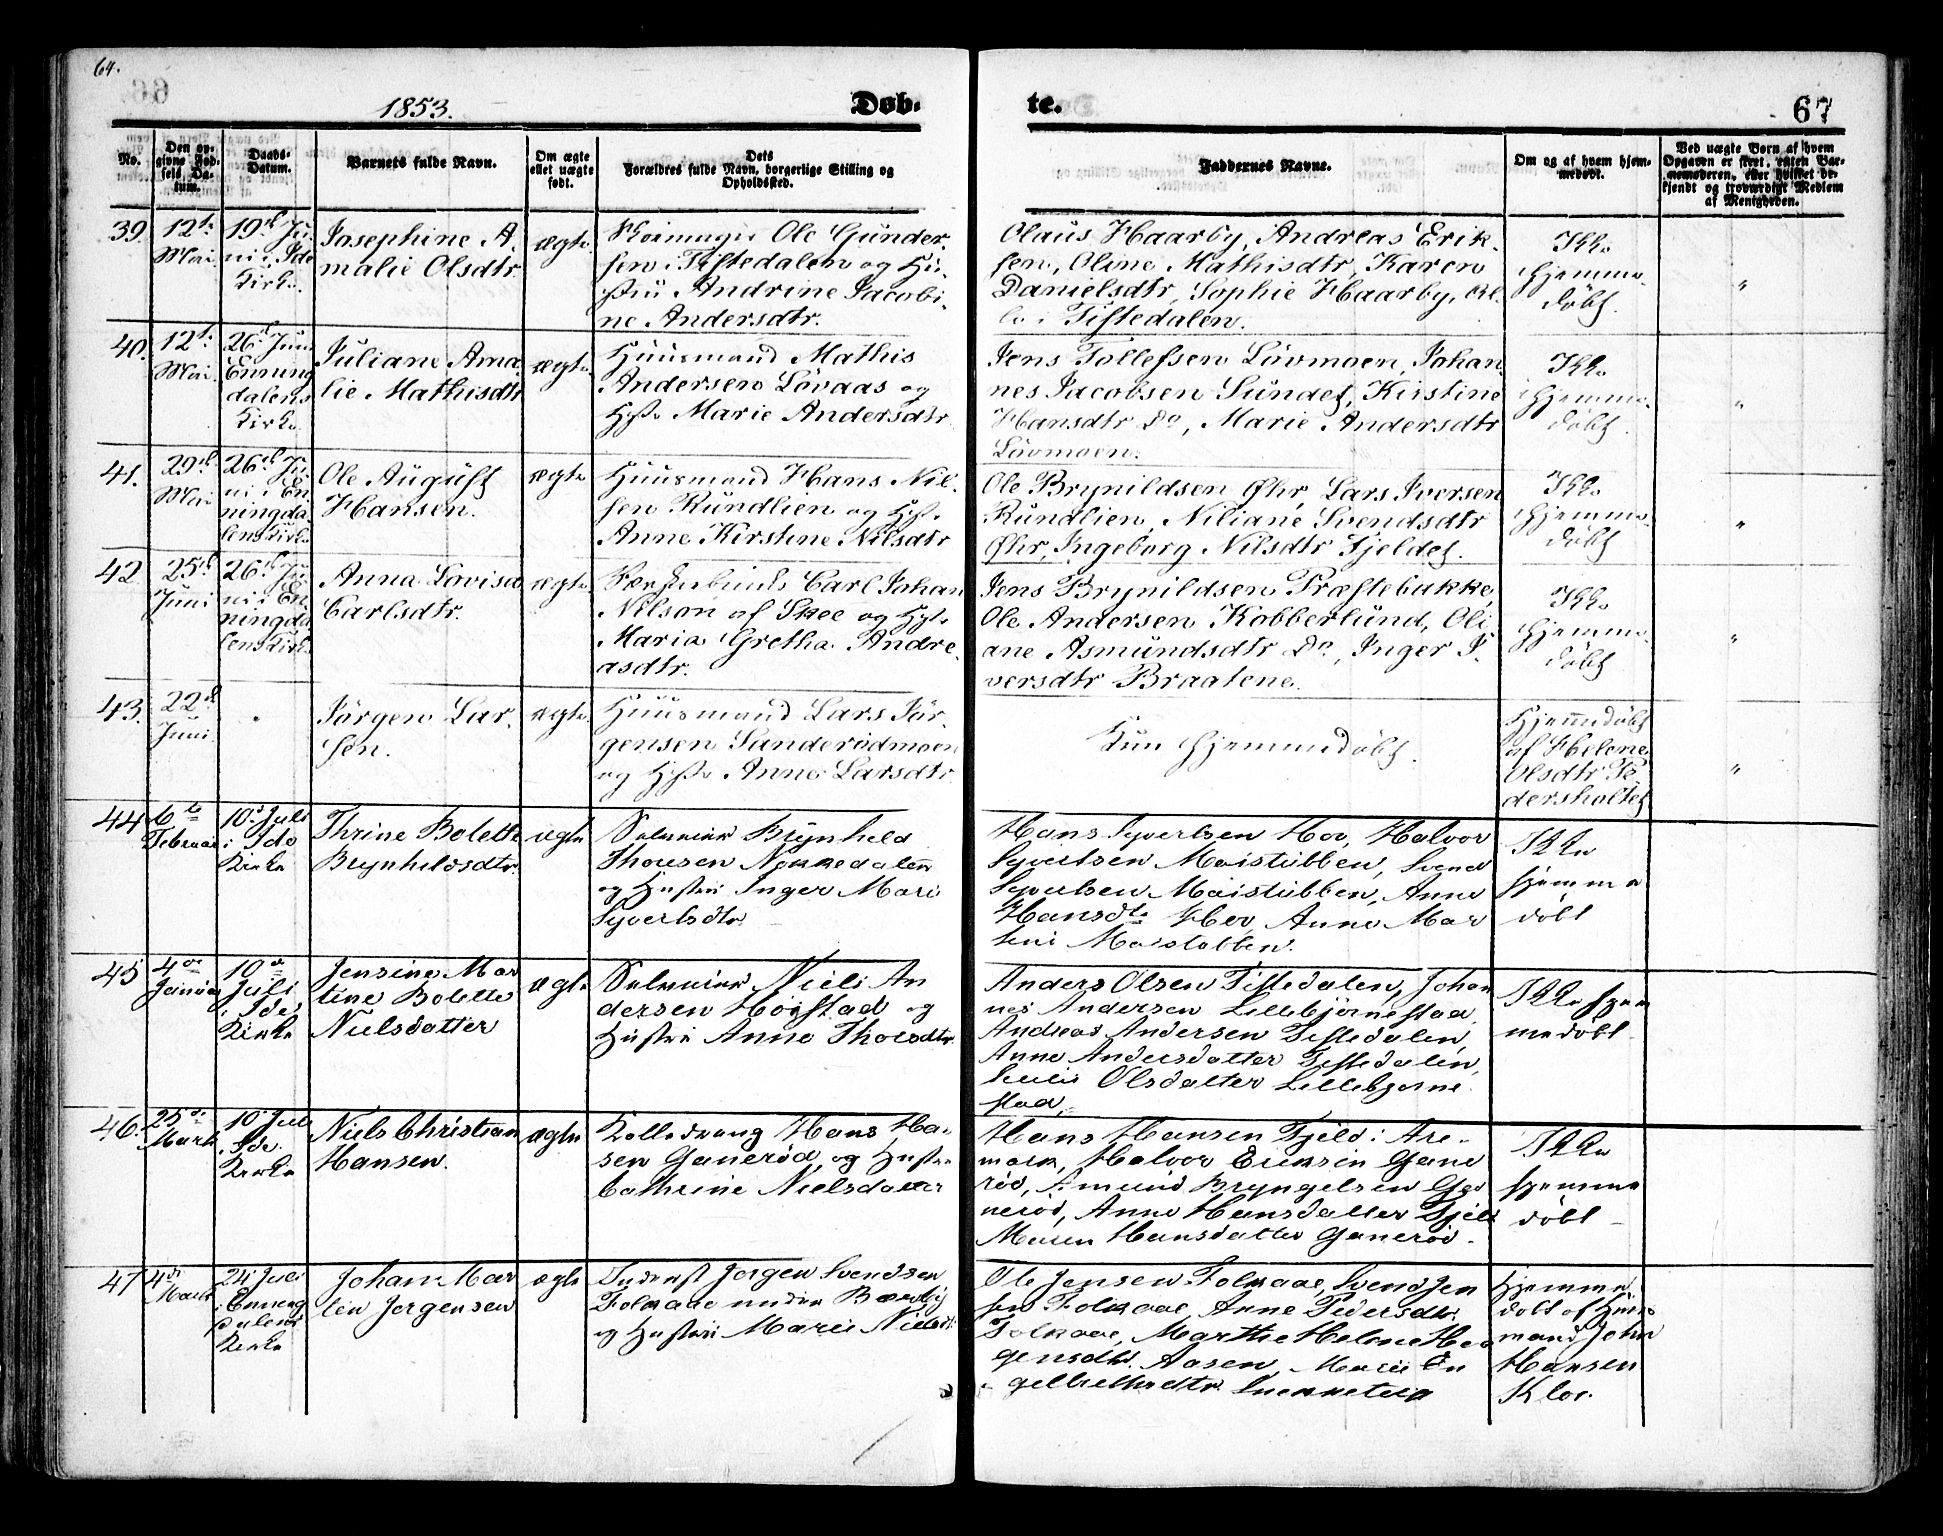 64.
1853.
Døb-
te.
67
No.
Den op-
givne Fød-
sels Da-
tum.
Daabs-
Datum.
Barnets fulde Navn.
Om ægte
ellet uægte
født.
Dets
Forældres fulde Navn, borgerlige Stilling og
Opholdssted.
Faddernes Navne.
Om og af hvem hjem-
medøbt.
Ved uægte Børn af hvem
Opgaven er skeet, enten Bar-
nemoderen, eller hvilket be-
kjendt og troværdigt Medlem
af Menigheden.
39.
12te
Mai.
19de Ju-
ni i Ide
Kirke.
Josephine A-
malie Olsdtr
ægte.
Ole Gunder-
sen i Tistedalen og Hu-
stru Andrine Jacobi-
ne Andersdtr.
Olaus Haarby, Andreas Erik-
sen, Oline Mathisdtr, Karen
Danielsdtr, Sophie Haarby, al-
le i Tistedalen.
Ikke
hjemme-
døbt.
"
40.
12te
Mai.
26de Juni
Enning-
dalens
Kirke.
Juliane Ama-
lie Mathisdtr
ægte.
Huusmand Mathis
Andersen Lövaas og
Hstr Marie Andersdtr
Jens Tollefsen Lövmoen, Johan-
nes Jacobsen Sundet, Kirstine
Hansdtr Do, Marie Andersdtr
Lövmoen.
Ikke
hjemme-
døbt.
"
41.
29de
Mai
26de Ju-
ni i En-
ningda-
lens Kirke
Ole August
Hansen.
ægte
Huusmand Hans Nil-
sen Rundlien og Hstr
Anne Kirstine Nilsdtr
Ole Brynildsen Øhr, Lars Iversen
Rundlien, Niliane Svendsdtr
Øhr, Ingeborg Nilsdtr Fjeldet.
Ikke
hjemme-
døbt
"
42.
25de
Juni
26de Ju-
ni i En-
ningda-
lens Kirke
Anna Lovisa
Carlsdtr.
ægte
Carl Johan
Nilson af Skee og Hstr
Maria Gretha Andre-
asdtr.
Jens Brynildsen Præstebakke,
Ole Andersen Kobberlund, Oli-
ane Asmundsdtr Do, Inger I-
versdtr Braatene.
Ikke
hjemme-
døbt
"
43.
22de
Juni
Jörgen Lar-
sen.
ægte.
Huusmand Lars Jör-
gensen Sanderödmoen
og Hstr Anne Larsdtr
Kun hjemmedøbt.
Hjemmedøbt
af Helene
Olsdtr Fe-
dersholtet
"
44
6te
Februar
10de Juli
i Ide
Kirke
Thrine Bolette
Brynhildsdtr.
ægte
Selveier Brynhild
Thoresen Nokkedalen
og Hustru Inger Mari
Syvertsdtr
Hans Syvertsen Hov, Halvor
Syvertsen Maistubben, Svend
Syvertsen Maistubben, Anne
Hansdtr Hov, Anne Mar
Maistobben.
Ikke
hjemme
døbt
45
4de
Januar
10de
Juli
i Ide
Kirke
Jensine Mar
tine Bolette
Nielsdatter
ægte
Selveier Niels An
dersen Högstad og
Hustru Anne Thoresdtr
Anders Olsen Tistedalen, Johan
nes Andersen Lillebjørnestad,
Andreas Andersen Tistedalen,
Anne Andersdatter Tistedalen,
Olsdatter Lillebjørne
stad,
Ikke hjem
medøbt
46.
25de
Marts
10de Juli
i Ide
Kirke
Niels Christian
Hansen.
ægte
Hans Han-
sen Ganerød, og Hustru
Cathrine Nielsdatter
Hans Hansen Fjeld i Are-
mark, Halvor Eriksen Gane
rød, Amund Bryngelsen Ga
nerød, Anne Hansdatter Fjeld
Maren Hansdatter Ganerød.
Ikke
hjemme
døbt
47
4de
Marts
24 Juli
i Enneng
dalens
Kirke
Johan Mar
tin Jørgensen
ægte
Inderst Jørgen Svendsen
Folkaae under Bærby
og Hustru Marie Nielsdtr
Ole Jensen Folkaae, Svend Jen
sen Folkaae, Anne Pedersdtr.
Folkaae, Marthe Helene Haa
gensdtr. Aasen, Marie En
gelbrethsdtr
Hjemme-
døbt af Huus
mand John
Hansen
Kløv.